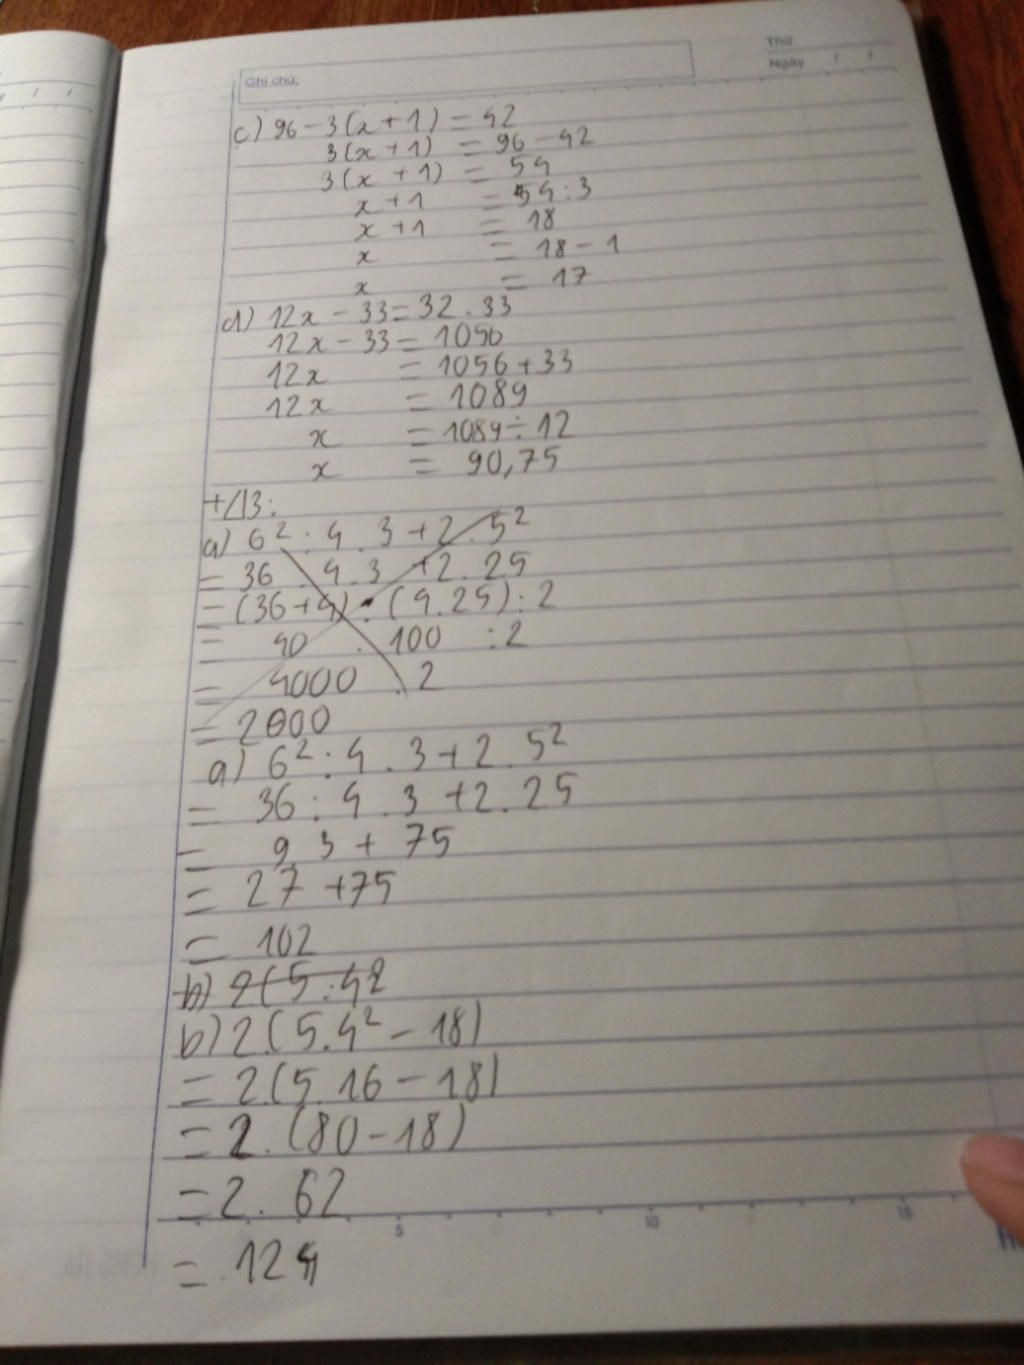 Thứ
Ghi chú:
Ngày / /
c) 96 - 3(x + 1) = 42
3(x + 1) = 96 - 42
3(x + 1) = 54
x + 1 = 54 : 3
x + 1 = 18
x = 18 - 1
x = 17
d) 12x - 33 = 32 . 33
12x - 33 = 1056
12x = 1056 + 33
12x = 1089
x = 1089 ÷ 12
x = 90,75
+/13:
a) 6² : 4 . 3 + 2 . 5²
= 36 : 4 . 3 + 2 . 25
= (36 + 4) . (4 . 25) : 2
= 40 . 100 : 2
= 4000 : 2
= 2000
a) 6² : 4 . 3 + 2 . 5²
= 36 : 4 . 3 + 2 . 25
= 9 . 3 + 75
= 27 + 75
= 102
b) 2(5 : 42
b) 2.(5 . 4² - 18)
= 2.(5 . 16 - 18)
= 2 . (80 - 18)
= 2 . 62
5 10 15
= 124